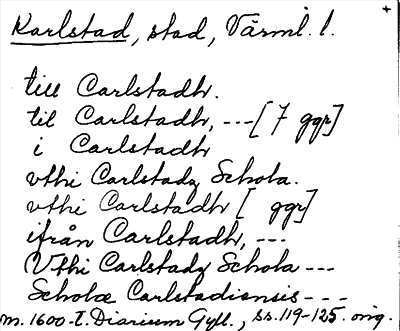 Karlstad, stad, Värml. l.
till Carlstadh.
til Carlstadh, ---[7 ggr]
i Carlstadh
vthi Carlstadz Schola.
vthi Carlstadh [ ggr]
ifrån Carlstadh, ---
Vthi Carlstadz Schola ---
Scholæ Carlstadiensis ---
m. 1600-t. Diarium Gyll., ss. 119-125. orig.